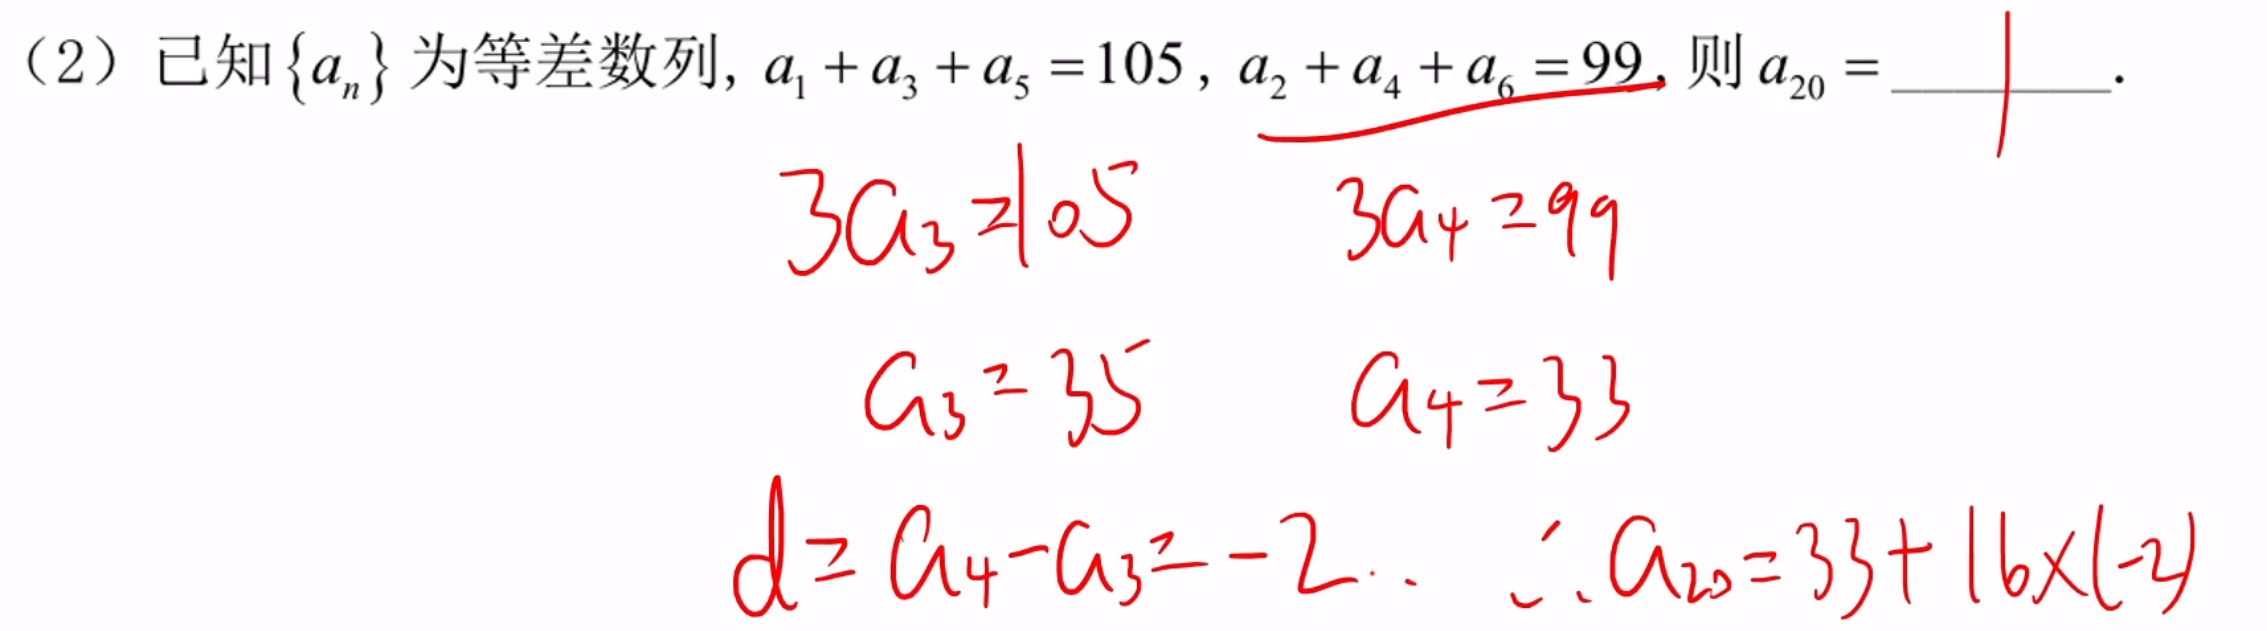 （2）已知{aₙ}为等差数列, a₁ + a₃ + a₅ = 105, a₂ + a₄ + a₆ = 99, 则 a₂₀ = 1.
3a₃=105 3a₄=99
a₃=35 a₄=33
d=a₄-a₃=-2.. ∴a₂₀=33+16×(-2)